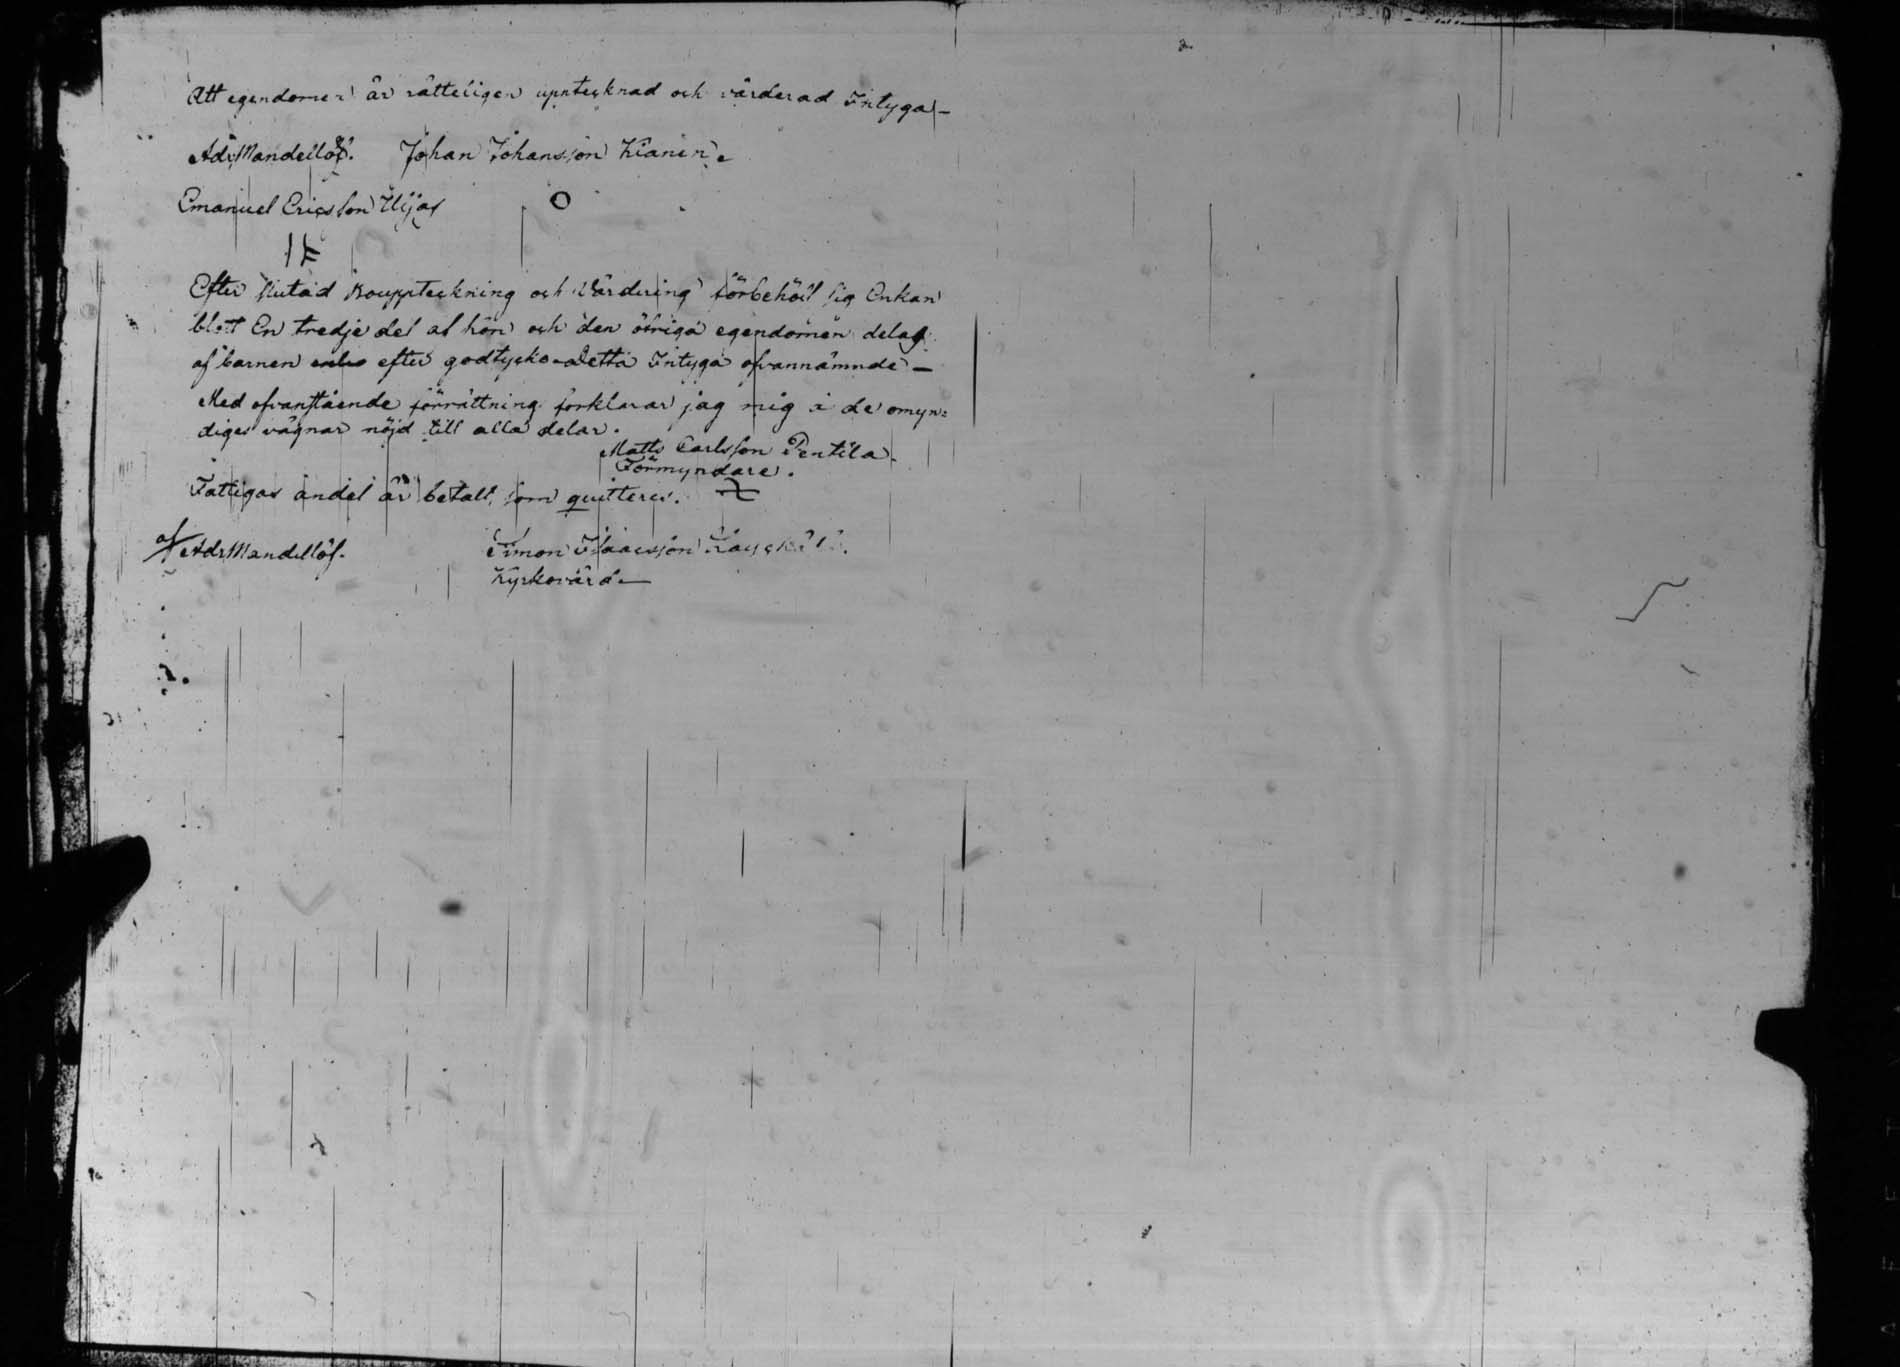 Att egendomen är rätteligen upptecknad och värderad Intyga—
Ad: Mandellöf. Johan Johansson Kianen
Emanuel Ericsson Ylijas
Efter slutad Bouppteckning och Värdering förbehöll sig Enkan
blott En tredje del af hön och den öfriga egendomen delas
af barnen efter godtycke Detta Intyga ofvannämnde—
Med ofvanstående förrättning förklarar jag mig i de omyn=
diges vägnar nöjd till alla delar.
Matts Carlsson Pentila
Förmyndare.
Fattigas andel är betalt, som quitteras.
af Ad: Mandellöf. Simon Isaacsson
Kyrkovärd—